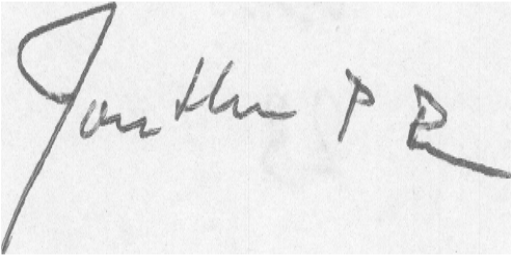 Jonathan P R